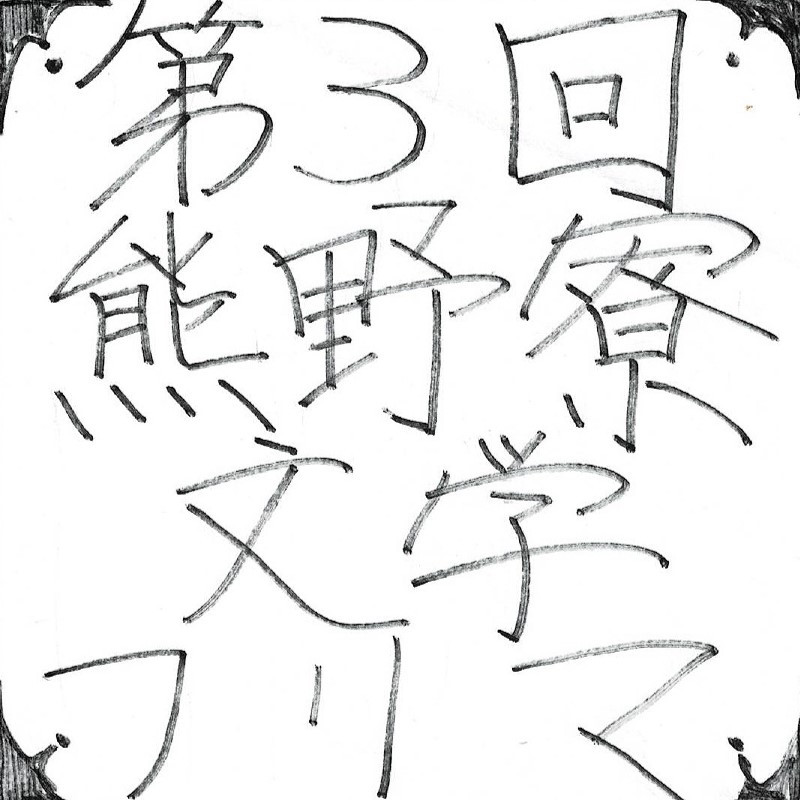 第3回
熊野寮
文学
フリマ